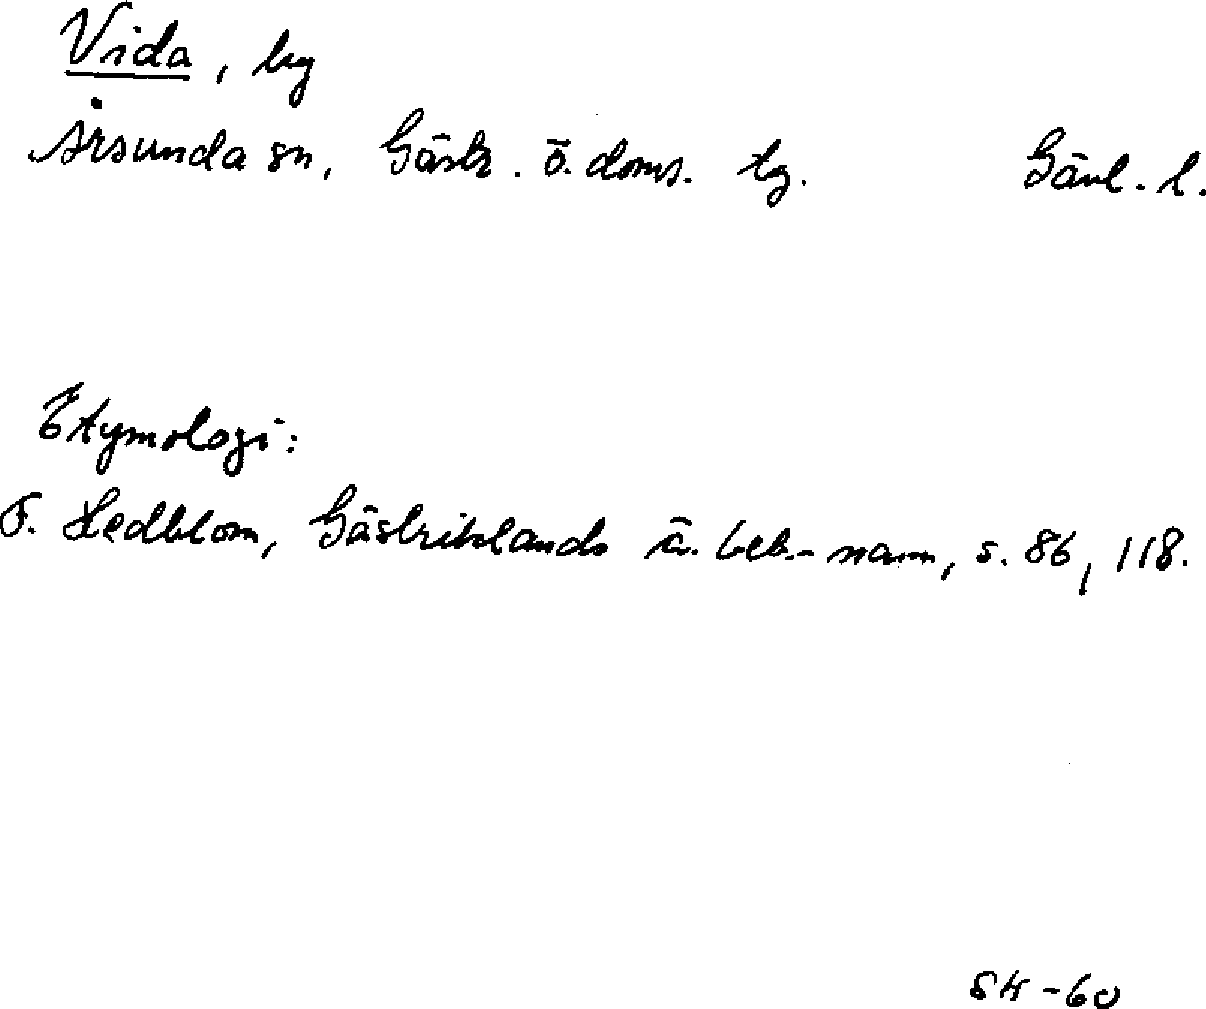 Vida, by
Årsunda sn, Gästr. ö. doms. tg. Gävl. l.
Etymologi:
F. Hedblom, Gästriklands ä. beb.-namn, s. 86, 118.
SH-60